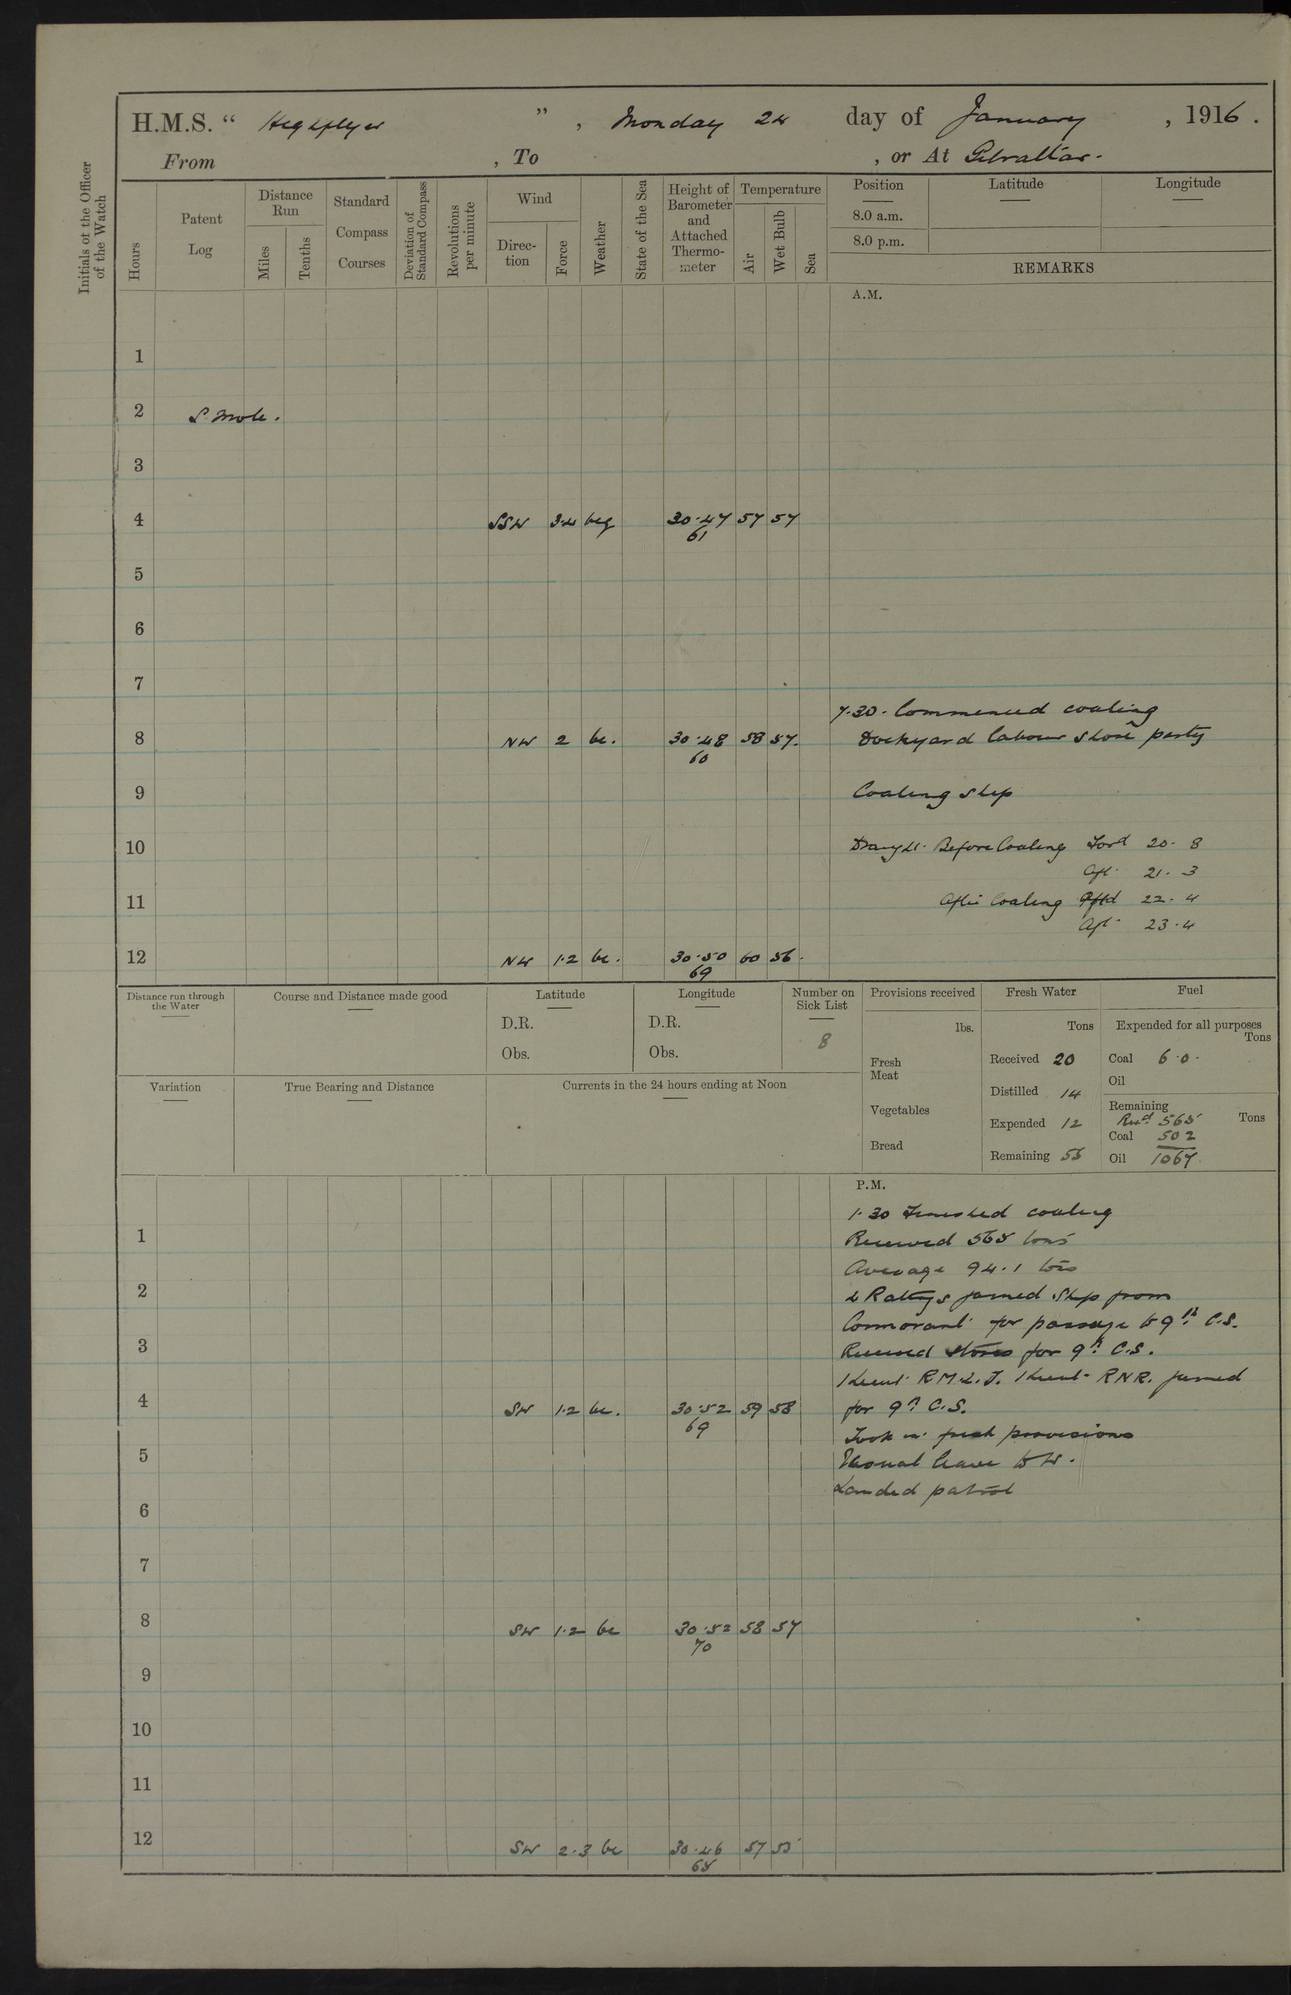 H.M.S. “ Highflyer ” , Monday 24 day of January , 1916 .
From , To , or At Gibraltar.
Initials of the Officer of the Watch
Hours
Patent Log
Distance Run
Miles
Tenths
Standard Compass Courses
Deviation of Standard Compass
Revolutions per minute
Wind
Direc-tion
Force
Weather
State of the Sea
Height of Barometer and Attached Thermo-meter
Temperature
Air
Wet Bulb
Sea
Position Latitude Longitude
8.0 a.m.
8.0 p.m.
REMARKS
A.M.
1
2 S. Mole.
3
4 SSW 3.4 bcq 30.47 57 57
61
5
6
7
7.30. Commenced coaling
8 NW 2 bc. 30.48 58 57. Dockyard labour & shore party
60
9 Coaling ship
10 Draught. Before Coaling Ford 20. 8
Aft. 21. 3
11 After Coaling Ford 22. 4
Aft. 23. 4
12 NW 1.2 bc. 30.50 60 56.
69
Distance run through the Water
Course and Distance made good
Latitude
D.R.
Obs.
Longitude
D.R.
Obs.
Number on Sick List
8
Provisions received
lbs.
Fresh Meat
Vegetables
Bread
Fresh Water
Tons
Received 20
Distilled 14
Expended 12
Remaining 55
Fuel
Expended for all purposes
Tons
Coal 6.0.
Oil
Remaining
Recd. 565 Tons
Coal 502
Oil 1067
Variation
True Bearing and Distance
Currents in the 24 hours ending at Noon
P.M.
1.30 Finished coaling
1 Received 565 tons
Average 94.1 tons
2 2 Ratings joined ship from
Cormorant for passage to 9th C.S.
3 Received stores for 9th C.S.
1 Lieut. R.M.L.I. 1 Lieut. RNR. joined
4 SW 1.2 bc. 30.52 59 58 for 9th C.S.
69
Took in fresh provisions
5 Usual leave to W.
Landed patrol
6
7
8 SW 1.2 bc 30.52 58 57
70
9
10
11
12 SW 2.3 bc 30.46 57 55
68